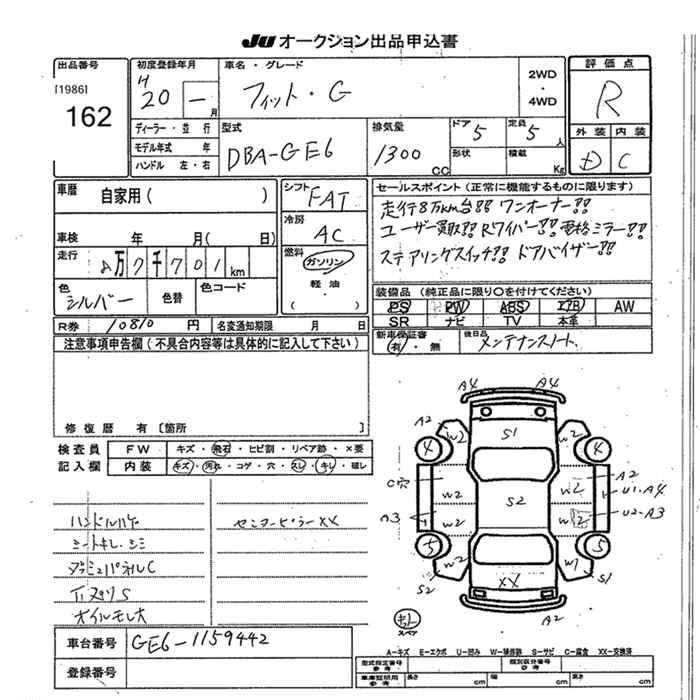 JU オークション出品申込書
出品番号
[1986]
162
初度登録年月
H 20 - 1 月
車名・グレード
フィット・G
2WD
・
4WD
評価点
R
外装 内装
D C
ディーラー・並行
モデル年式 年
ハンドル 左・右
型式
DBA-GE6
排気量
1300 CC
ドア 5
定員 5 人
形状
積載 Kg
車歴
自家用( )
シフト
FAT
冷房
AC
燃料
ガソリン
軽油
・
( )
車検 年 月( 日)
走行 8万7千701km
色
シルバー
色替
色コード
R券 10810 円
名変通知期限 月 日
セールスポイント(正常に機能するものに限ります)
走行8万km台!! ワンオーナー!!
ユーザー買取!! Rワイパー!! 電格ミラー!!
ステアリングスイッチ!! ドアバイザー!!
装備品(純正品に限り〇を付けてください)
PS PW ABS エアB AW
SR ナビ TV 本革
新車保証書
有・無
後日品
メンテナンスノート
注意事項申告欄(不具合内容等は具体的に記入して下さい)
修復歴 有〔箇所 〕
検査員
記入欄
FW キズ・飛石・ヒビ割・リペア跡・×要
内装 キズ・汚れ・コゲ・穴・スレ・キレ・破レ
ハンドルハゲ
シートキレ・シミ
ダッシュパネルC
下廻りS
オイルモレ大
センターピラーXX
A4 A4
A2 W2 S1 W2
4 4
C穴 W2 S2 W2 A2
U1・A4
A3 W2 W2 U2・A3
5 5
S2 W2 XX W1 S1
A2
スペア
A-キズ E-エクボ U-凹み W-補修跡 S-サビ C-腐食 XX-交換済
車台番号
GE6-1159442
登録番号
型式指定番号
参考
類別区分番号
参考
車庫証明用
参考
長さ cm 幅 cm 高さ cm